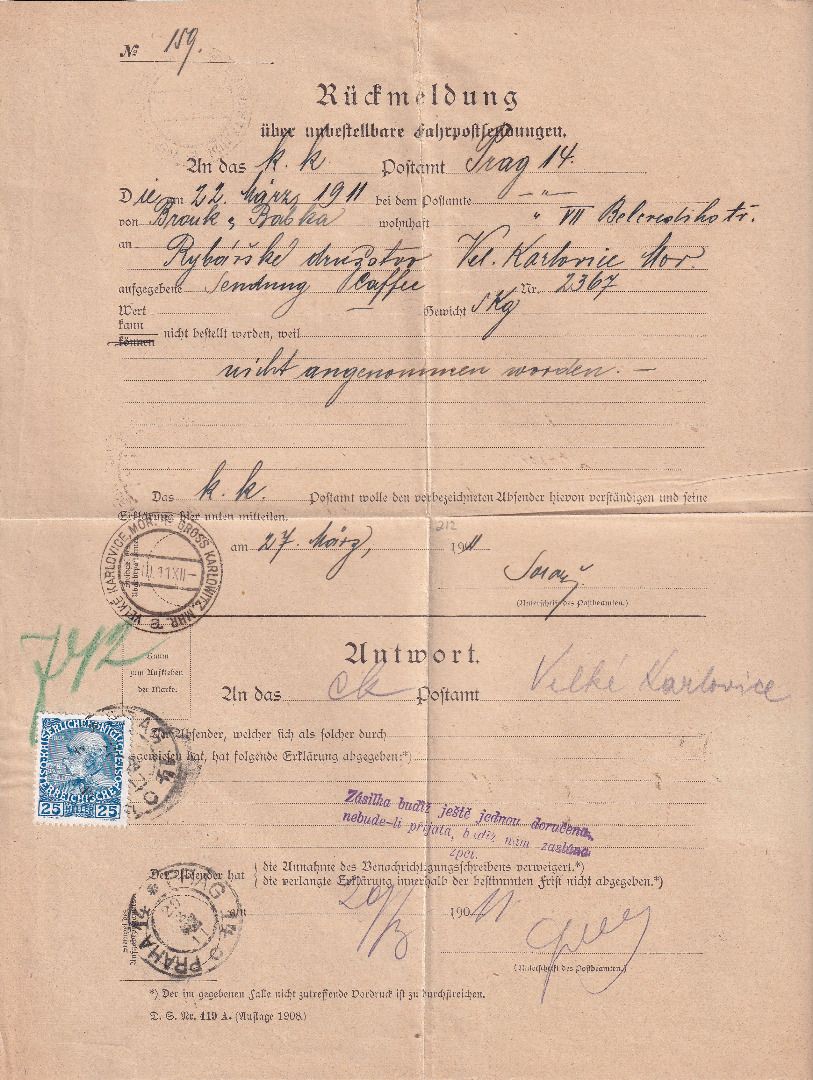 № 159.
Rückmeldung
über unbestellbare Fahrpostsendungen.
An das k. k. Postamt Prag 14.
Die am 22. März 1911 bei dem Postamte — " —
von Brouk " Babka wohnhaft " VII
an Rybářské družstvo Vel. Karlovice Mor.
aufgegebene Sendung Caffee Nr. 2367
Wert — Gewicht 5 Kg
kann
können nicht bestellt werden, weil
nicht angenommen worden. —
Das k. k. Postamt wolle den verbezeichneten Absender hievon verständigen und seine
Erklärung hier unten mitteilen.
212
am 27. März, 1911
(Unterschrift des Postbeamten.)
VELKÉ KARLOVICE, MOR. GROSS KARLOWITZ, MHR.
742
Antwort.
Raum
zum Aufkleben
der Marke.
An das ck Postamt Velké Karlovice
Der Absender, welcher sich als solcher durch
ausgewiesen hat, hat folgende Erklärung abgegeben:*)
25 25
Zásilka budiž ještě jednou doručena,
nebude-li přijata, budiž nám zaslána
zpět.
Der Absender hat { die Annahme des Benachrichtigungsschreibens verweigert.*)
{ die verlangte Erklärung innerhalb der bestimmten Frist nicht abgegeben.*)
PRAG 14
PRAHA 14
am 29/3 1911
(Unterschrift des Postbeamten.)
*) Der im gegebenen Falle nicht zutreffende Vordruck ist zu durchstreichen.
D. S. Nr. 419 A. (Auflage 1908.)